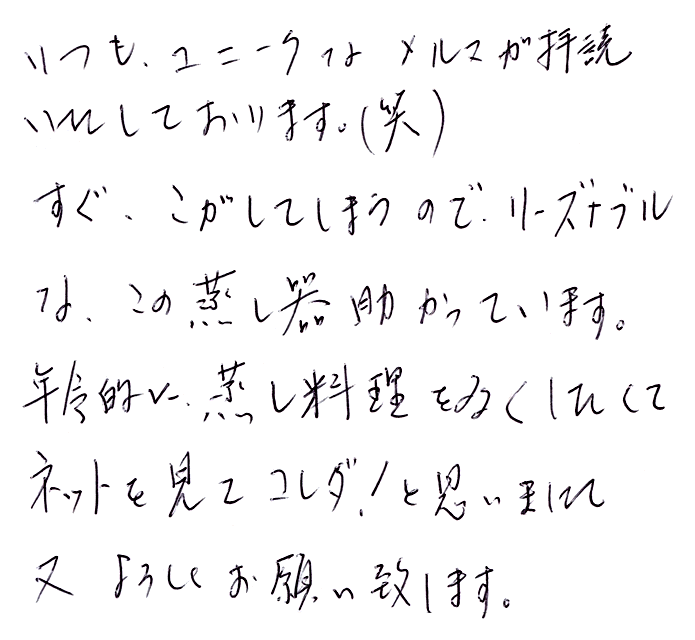 いつも、ユニークな メルマガ拝読
いたしております。(笑)
すぐ、こがしてしまうので、リーズナブル
な、この蒸し器助かっています。
年令的に、蒸し料理を多くしたくて
ネットを見てコレダ!と思いました
又 よろしくお願い致します。